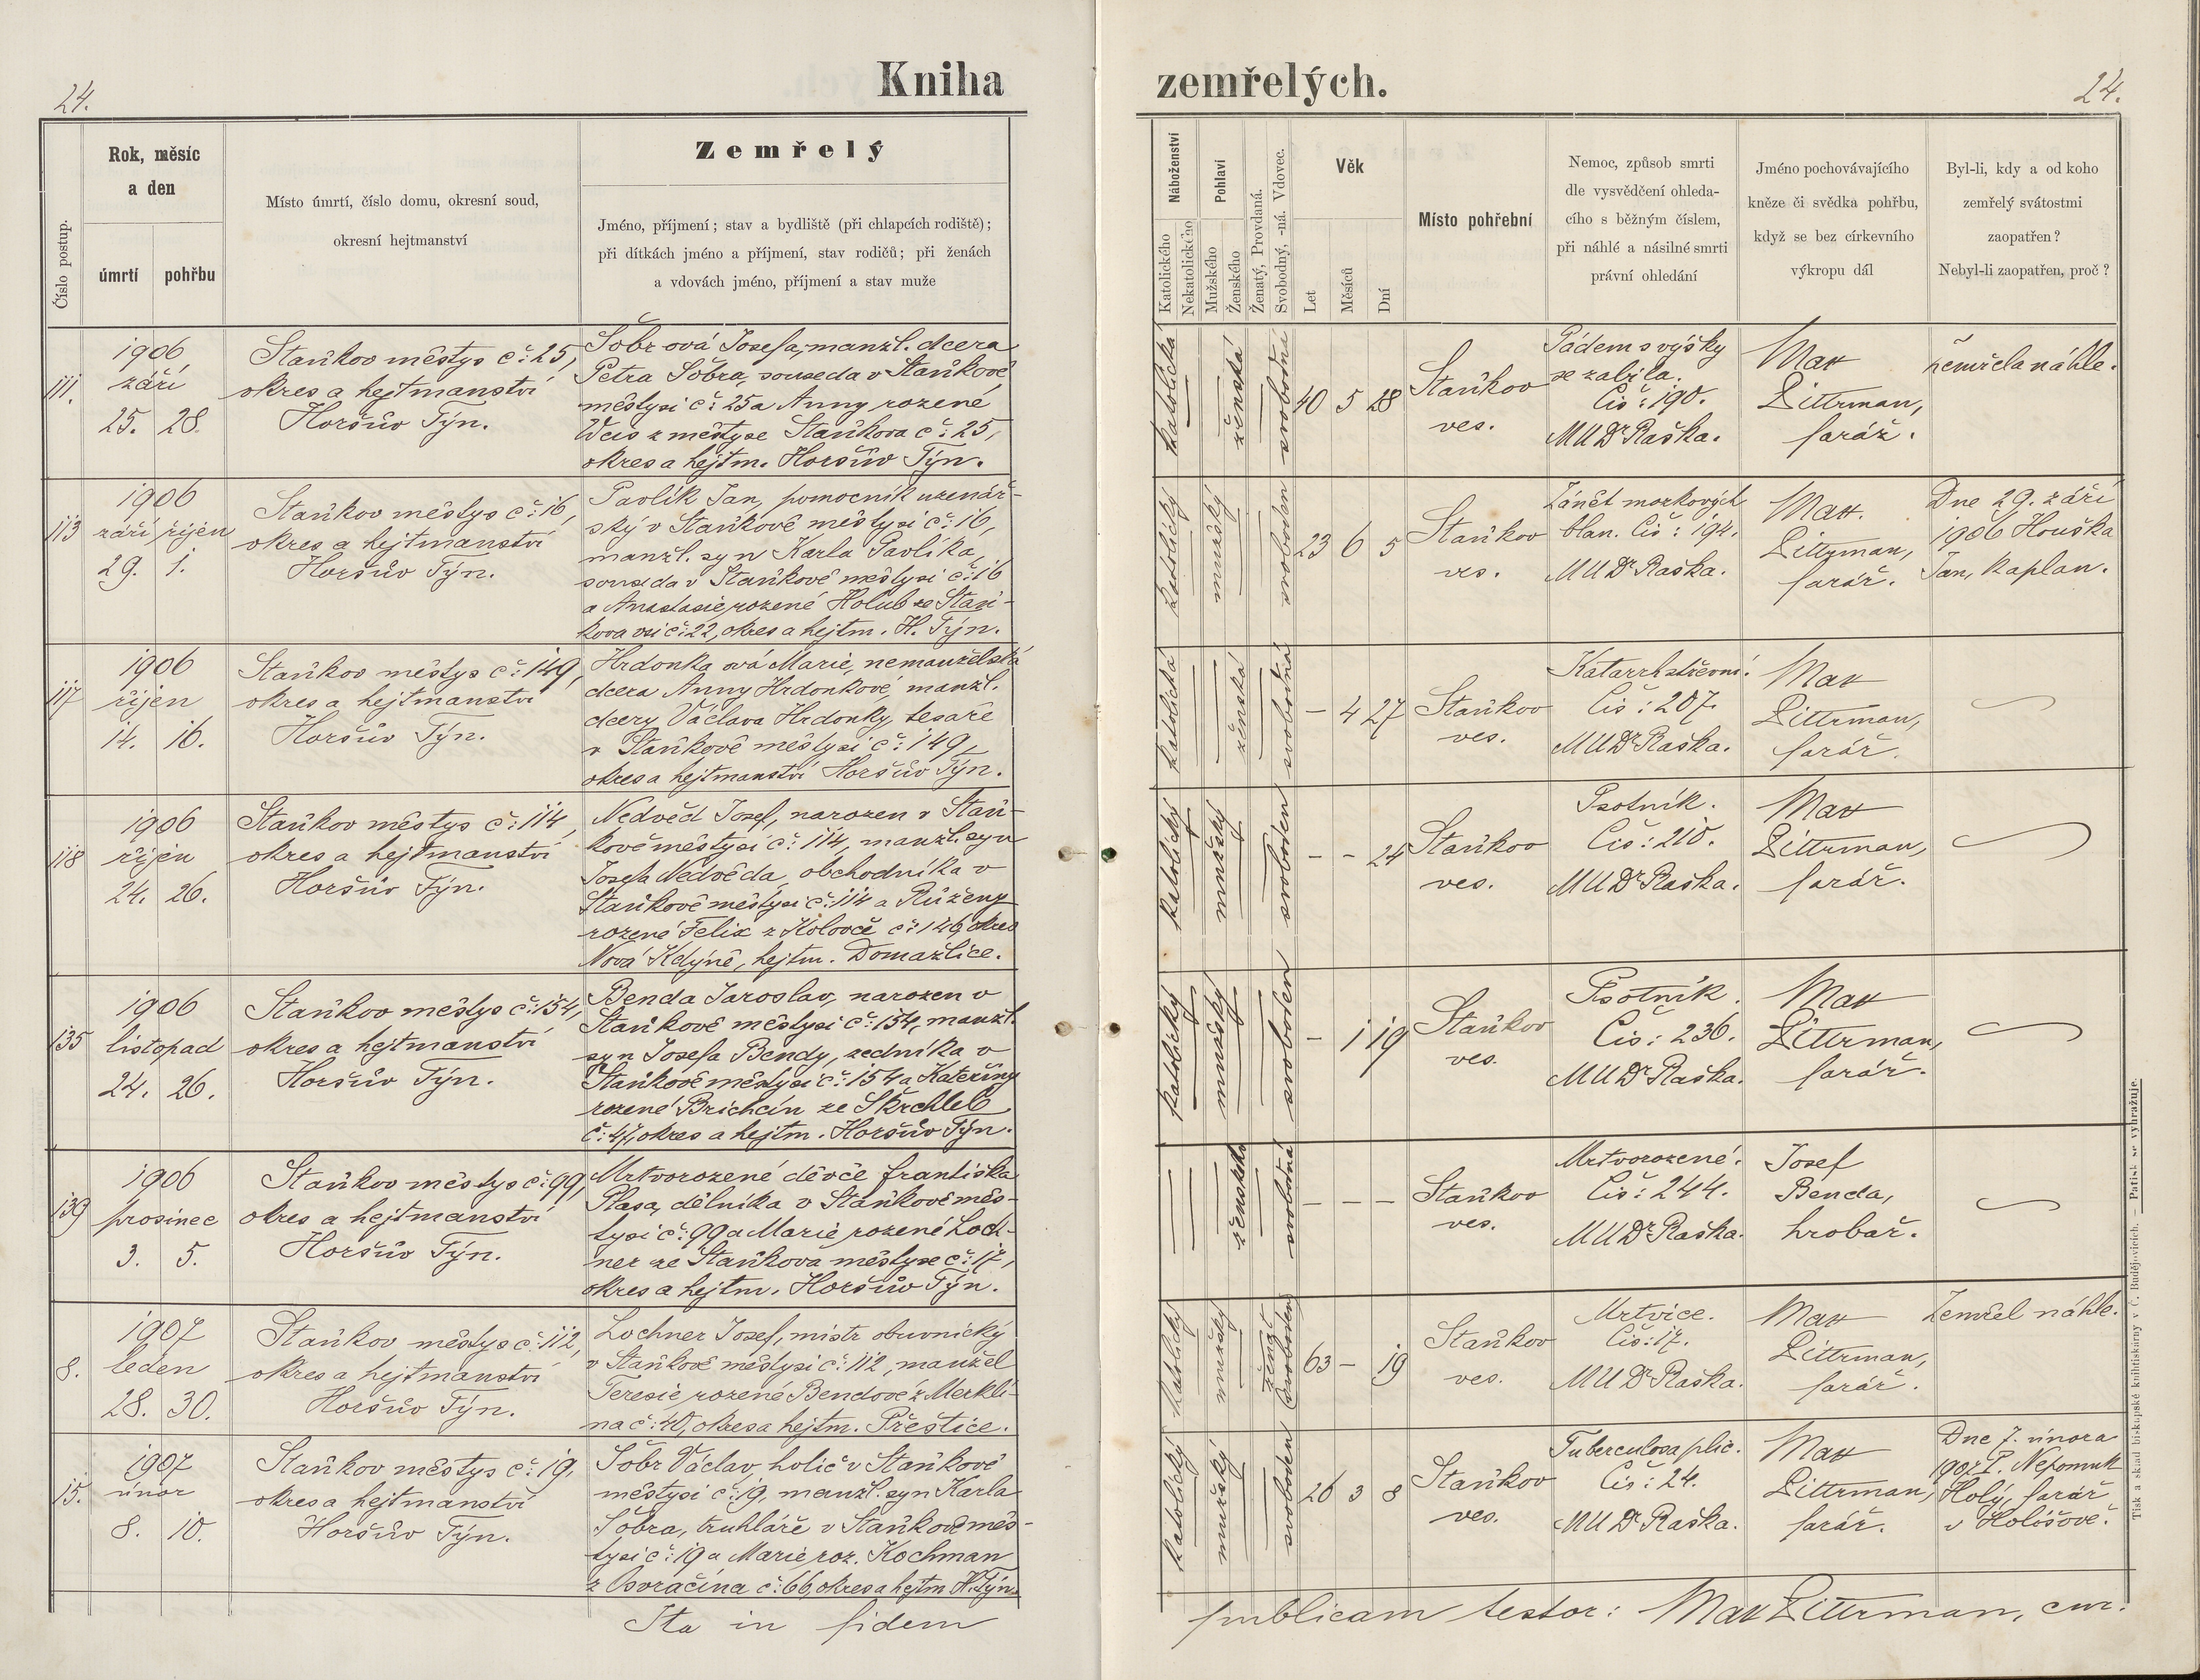 24.
Kniha
zemřelých.
24.
Číslo postup.
Rok, měsíc
a den
úmrtí
pohřbu
Místo úmrtí, číslo domu, okresní soud,
okresní hejtmanství
Zemřelý
Jméno, příjmení; stav a bydliště (při chlapcích rodiště);
při dítkách jméno a příjmení, stav rodičů; při ženách
a vdovách jméno, příjmení a stav muže
Náboženství
Katolického
Nekatolického
Pohlaví
Mužského
Ženského
Ženatý, Provdaná.
Svobodný, -ná. Vdovec.
Věk
Let
Měsíců
Dní
Místo pohřební
Nemoc, způsob smrti
dle vysvědčení ohleda-
cího s běžným číslem,
při náhlé a násilné smrti
právní ohledání
Jméno pochovávajícího
kněze či svědka pohřbu,
když se bez církevního
výkropu dál
Byl-li, kdy a od koho
zemřelý svátostmi
zaopatřen?
Nebyl-li zaopatřen, proč?
111.
1906
září
25. 28.
Staňkov městys č: 25,
okres a hejtmanství
Horšův Týn.
Šobrová Josefa, manžl. dcera
Petra Šobra, souseda v Staňkově
městysi č: 25 a Anny rozené
Weis z městyse Staňkova č: 25,
okres a hejtm. Horšův Týn.
katolická
ženská
svobodná
40 5 28
Staňkov
ves.
Pádem s výšky
se zabila.
Čís: 190.
MUDr Raška.
Max
Littrman,
farář.
Zemřela náhle.
113
1906
září říjen
29. 1.
Staňkov městys č: 16,
okres a hejtmanství
Horšův Týn.
Pavlík Jan, pomocník uzenář-
ský v Staňkově městysi č: 16,
manžl. syn Karla Pavlíka,
souseda v Staňkově městysi č: 16
a Anastasie rozené Holub ze Staň-
kova vsi č: 22, okres a hejtm. H. Týn.
katolický
mužský
svoboden
23 6 5
Staňkov
ves.
Zánět mozkových
blan. Čís: 194.
MUDr Raška.
Max
Littrman,
farář.
Dne 29. září
1906 Houška
Jan, kaplan.
117
1906
říjen
14. 16.
Staňkov městys č: 149,
okres a hejtmanství
Horšův Týn.
Hrdonka ová Marie, nemanželská
dcera Anny Hrdonkové, manžl.
dcery Václava Hrdonky, tesaře
v Staňkově městysi č: 149,
okres a hejtmanství Horšův Týn.
katolická
ženská
svobodná
– 4 27
Staňkov
ves.
Katarrh střevní.
Čís: 207.
MUDr Raška.
Max
Littrman,
farář.
118
1906
říjen
24. 26.
Staňkov městys č: 114,
okres a hejtmanství
Horšův Týn.
Nedvěd Josef, narozen v Staň-
kově městysi č: 114, manžl. syn
Josefa Nedvěda, obchodníka v
Staňkově městysi č: 114 a Růženy
rozené Felix z Kolovče č: 146, okres
Nová Kdyně, hejtm. Domažlice.
katolický
mužský
svoboden
– – 24
Staňkov
ves.
Psotník.
Čís: 210.
MUDr Raška.
Max
Littrman,
farář.
135
1906
listopad
24. 26.
Staňkov městys č: 154,
okres a hejtmanství
Horšův Týn.
Benda Jaroslav, narozen v
Staňkově městysi č: 154, manžl.
syn Josefa Bendy, zedníka v
Staňkově městysi č: 154 a Kateřiny
rozené Brichcín ze Škrchleb
č: 47, okres a hejtm. Horšův Týn.
katolický
mužský
svoboden
– 1 19
Staňkov
ves.
Psotník.
Čís: 236.
MUDr Raška.
Max
Littrman,
farář.
139
1906
prosinec
3. 5.
Staňkov městys č: 99,
okres a hejtmanství
Horšův Týn.
Mrtvorozené děvče Františka
Plasa, dělníka v Staňkově měs-
tysi č: 99 a Marie rozené Loch-
ner ze Staňkova městyse č: 17,
okres a hejtm. Horšův Týn.
ženského
svobodná
– – –
Staňkov
ves.
Mrtvorozené.
Čís: 244.
MUDr Raška.
Josef
Benda,
hrobař.
8.
1907
leden
28. 30.
Staňkov městys č: 112,
okres a hejtmanství
Horšův Týn.
Lochner Josef, mistr obuvnický
v Staňkově městysi č: 112, manžel
Teresie, rozené Bendové z Merklí-
na č: 40, okres a hejtm. Přeštice.
katolický
mužský
ženat
svoboden
63 – 19
Staňkov
ves.
Mrtvice.
Čís: 17.
MUDr Raška.
Max
Littrman,
farář.
Zemřel náhle.
15.
1907
únor
8. 10.
Staňkov městys č: 19,
okres a hejtmanství
Horšův Týn.
Šobr Václav, holič v Staňkově
městysi č: 19, manžl. syn Karla
Šobra, truhláře v Staňkově měs-
tysi č: 19 a Marie, roz. Kochman
z Osvračína č: 66, okres a hejtm H. Týn.
katolický
mužský
svoboden
26 3 8
Staňkov
ves.
Tuberculosa plic.
Čís: 24.
MUDr Raška.
Max
Littrman,
farář.
Dne 7. února
1907 P. Nepomuk
Holý, farář
v Holišově.
Ita in fidem
publicam testor: Max Littrman, cur.
Tisk a sklad biskupské knihtiskárny v Č. Budějovicích. – Patisk se vyhražuje.